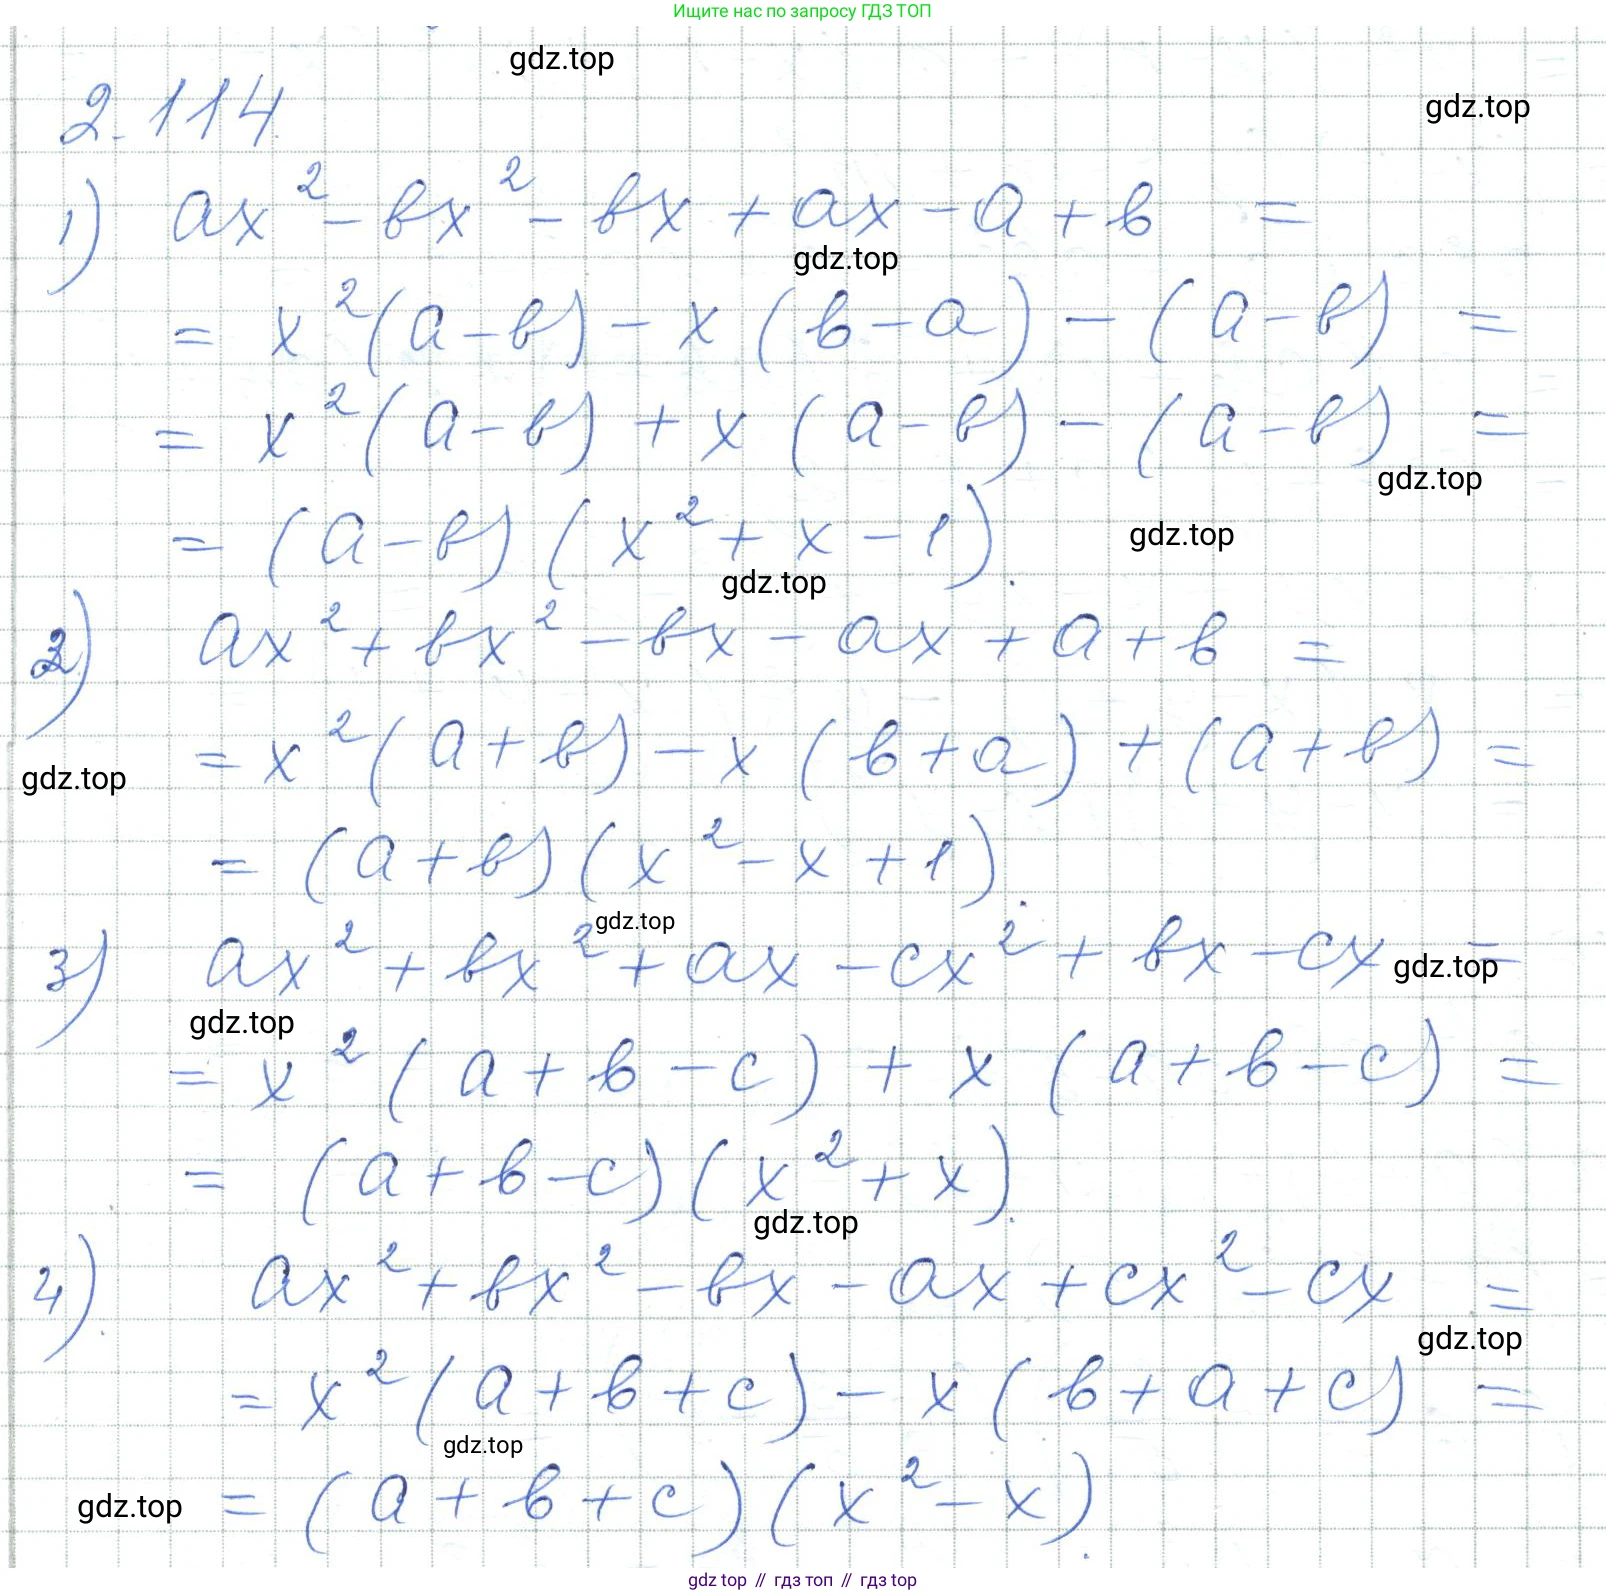 Ищите нас по запросу ГДЗ ТОП
gdz.top
2.114.
gdz.top
1) ax² - bx² - bx + ax - a + b =
gdz.top
= x²(a-b) - x(b-a) - (a-b) =
= x²(a-b) + x(a-b) - (a-b) =
gdz.top
= (a-b)(x² + x - 1).
gdz.top
gdz.top
2) ax² + bx² - bx - ax + a + b =
= x²(a+b) - x(b+a) + (a+b) =
gdz.top
= (a+b)(x² - x + 1).
gdz.top
3) ax² + bx² + ax - cx² + bx - cx =
gdz.top
gdz.top
= x²(a+b-c) + x(a+b-c) =
= (a+b-c)(x² + x).
gdz.top
4) ax² + bx² - bx - ax + cx² - cx =
gdz.top
= x²(a+b+c) - x(b+a+c) =
gdz.top
= (a+b+c)(x² - x).
gdz.top
gdz top // гдз топ // гдз top